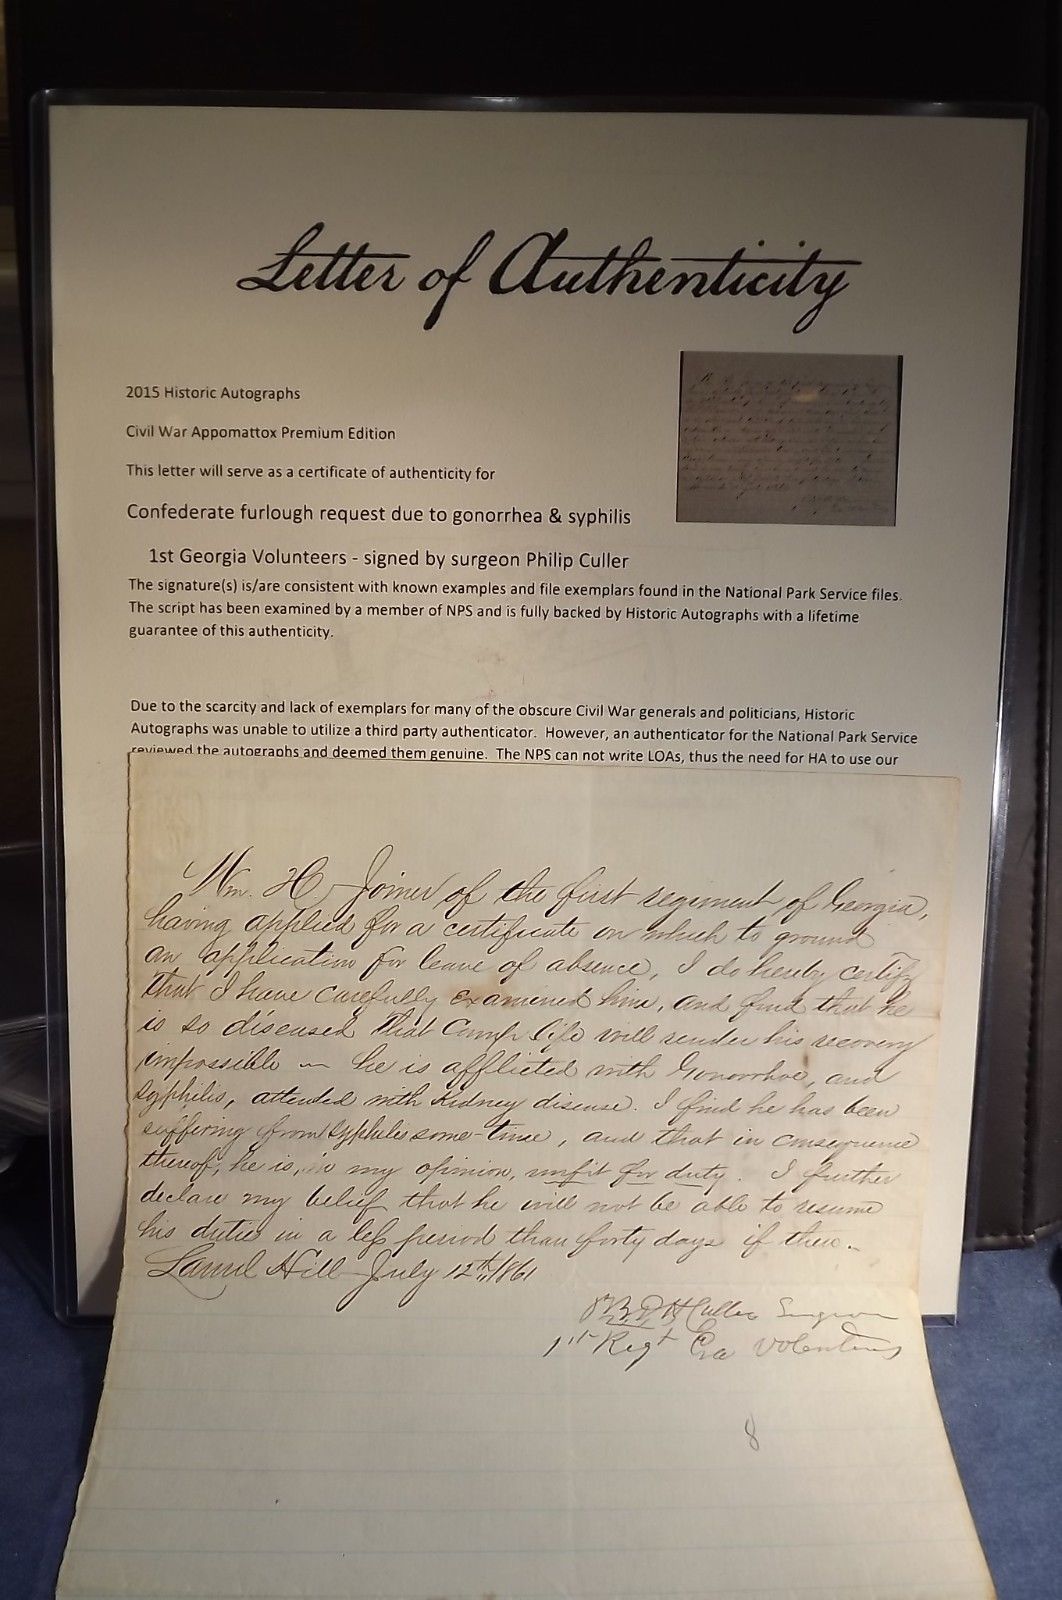 Letter of Authenticity
2015 Historic Autographs
Civil War Appomattox Premium Edition
This letter will serve as a certificate of authenticity for
Confederate furlough request due to gonorrhea & syphilis
1st Georgia Volunteers - signed by surgeon Philip Culler
The signature(s) is/are consistent with known examples and file exemplars found in the National Park Service files.
The script has been examined by a member of NPS and is fully backed by Historic Autographs with a lifetime
guarantee of this authenticity.
Due to the scarcity and lack of exemplars for many of the obscure Civil War generals and politicians, Historic
Autographs was unable to utilize a third party authenticator. However, an authenticator for the National Park Service
reviewed the autographs and deemed them genuine. The NPS can not write LOAs, thus the need for HA to use our
Wm. H Joiner of the first regiment of Georgia,
having applied for a certificate on which to ground
an application for leave of absence, I do hereby certify
that I have carefully examined him, and find that he
is so diseased that Camp life will render his recovery
impossible — he is afflicted with Gonorrhoe, and
Syphilis, attended with Kidney disease. I find he has been
suffering from Syphilis some-time, and that in consequence
thereof, he is, in my opinion, unfit for duty. I further
declare my belief that he will not be able to resume
his duties in a less period than forty days if then.
Laurel Hill July 12th, 1861
Culler Surgeon
1st Regt Ga Volenteers
8